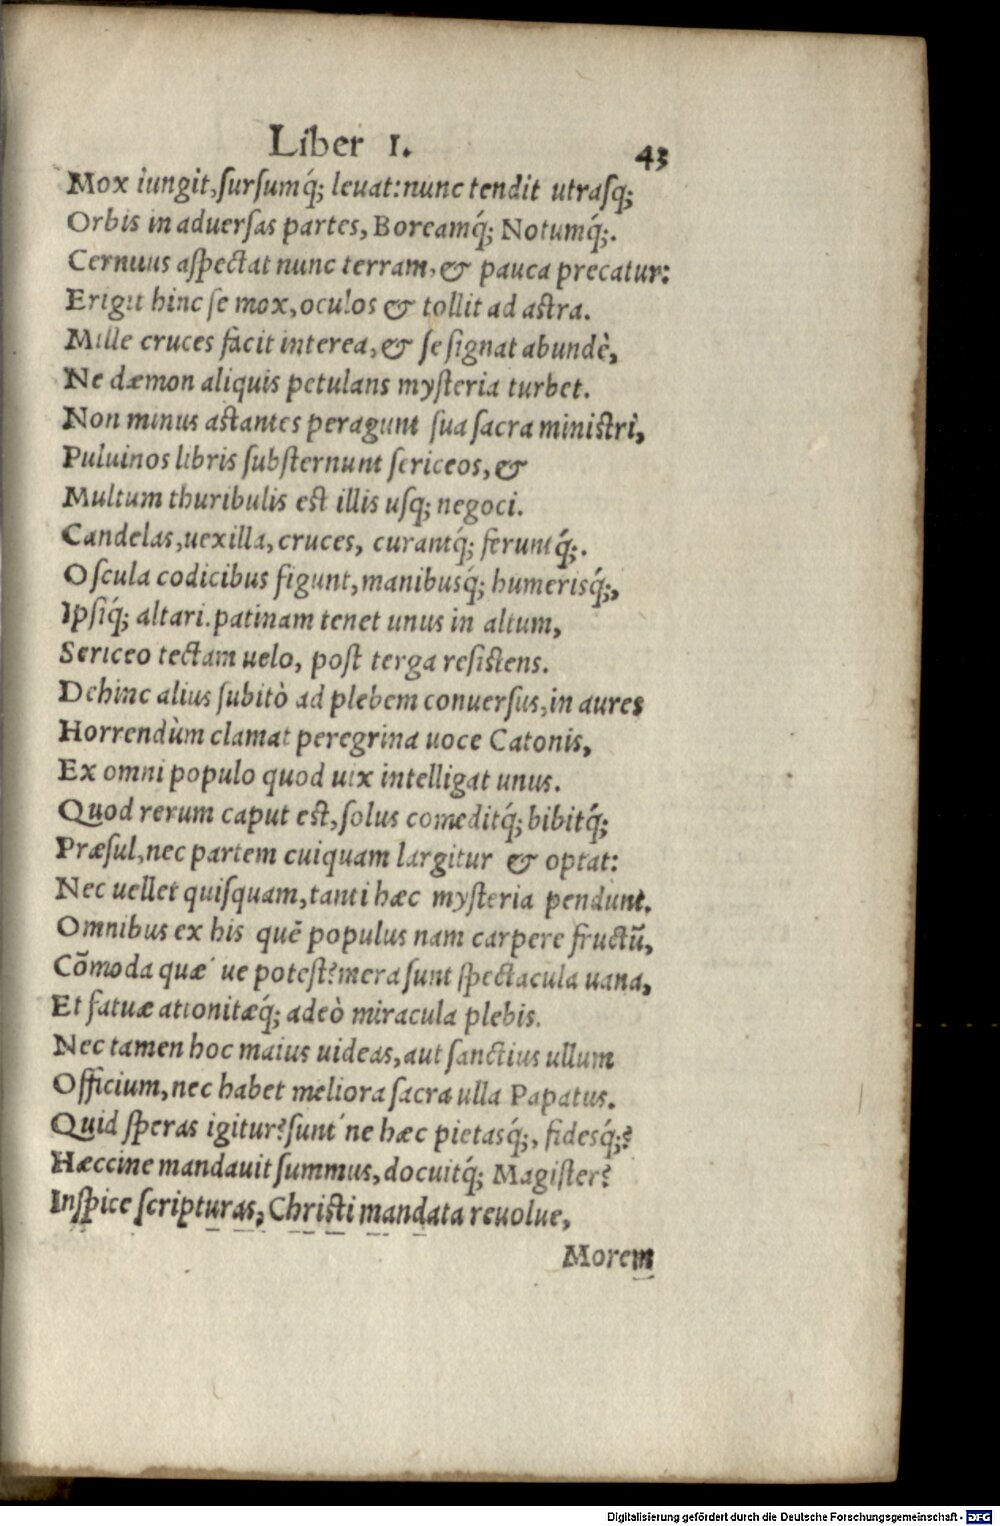 Liber 1.
43
Mox iungit, sursumq́; leuat: nunc tendit utrasq;
Orbis in aduersas partes, Boreamq́; Notumq́;.
Cernuus aspectat nunc terram, & pauca precatur:
Erigit hinc se mox, oculos & tollit ad astra.
Mille cruces facit interea, & se signat abundè,
Ne dæmon aliquis petulans mysteria turbet.
Non minus astantes peragunt sua sacra ministri,
Puluinos libris substernunt sericeos, &
Multum thuribulis est illis usq; negoci.
Candelas, uexilla, cruces, curantq́; feruntq́;.
Oscula codicibus figunt, manibusq́; humerisq́;,
Ipsiq́; altari. patinam tenet unus in altum,
Sericeo tectam uelo, post terga resistens.
Dehinc alius subitò ad plebem conuersus, in aures
Horrendùm clamat peregrina uoce Catonis,
Ex omni populo quod uix intelligat unus.
Quod rerum caput est, solus comeditq́; bibitq́;
Præsul, nec partem cuiquam largitur & optat:
Nec uellet quisquam, tanti hæc mysteria pendunt.
Omnibus ex his quẽ populus nam carpere fructũ,
Cõmoda quæ' ue potest? mera sunt spectacula uana,
Et fatuæ attonitæq́; adeò miracula plebis.
Nec tamen hoc maius uideas, aut sanctius ullum
Officium, nec habet meliora sacra ulla Papatus.
Quid speras igitur? sunt' ne hæc pietasq́;, fidesq́;?
Hæccine mandauit summus, docuitq́; Magister?
Inspice scripturas, Christi mandata reuolue,
Morem
Digitalisierung gefördert durch die Deutsche Forschungsgemeinschaft - DFG